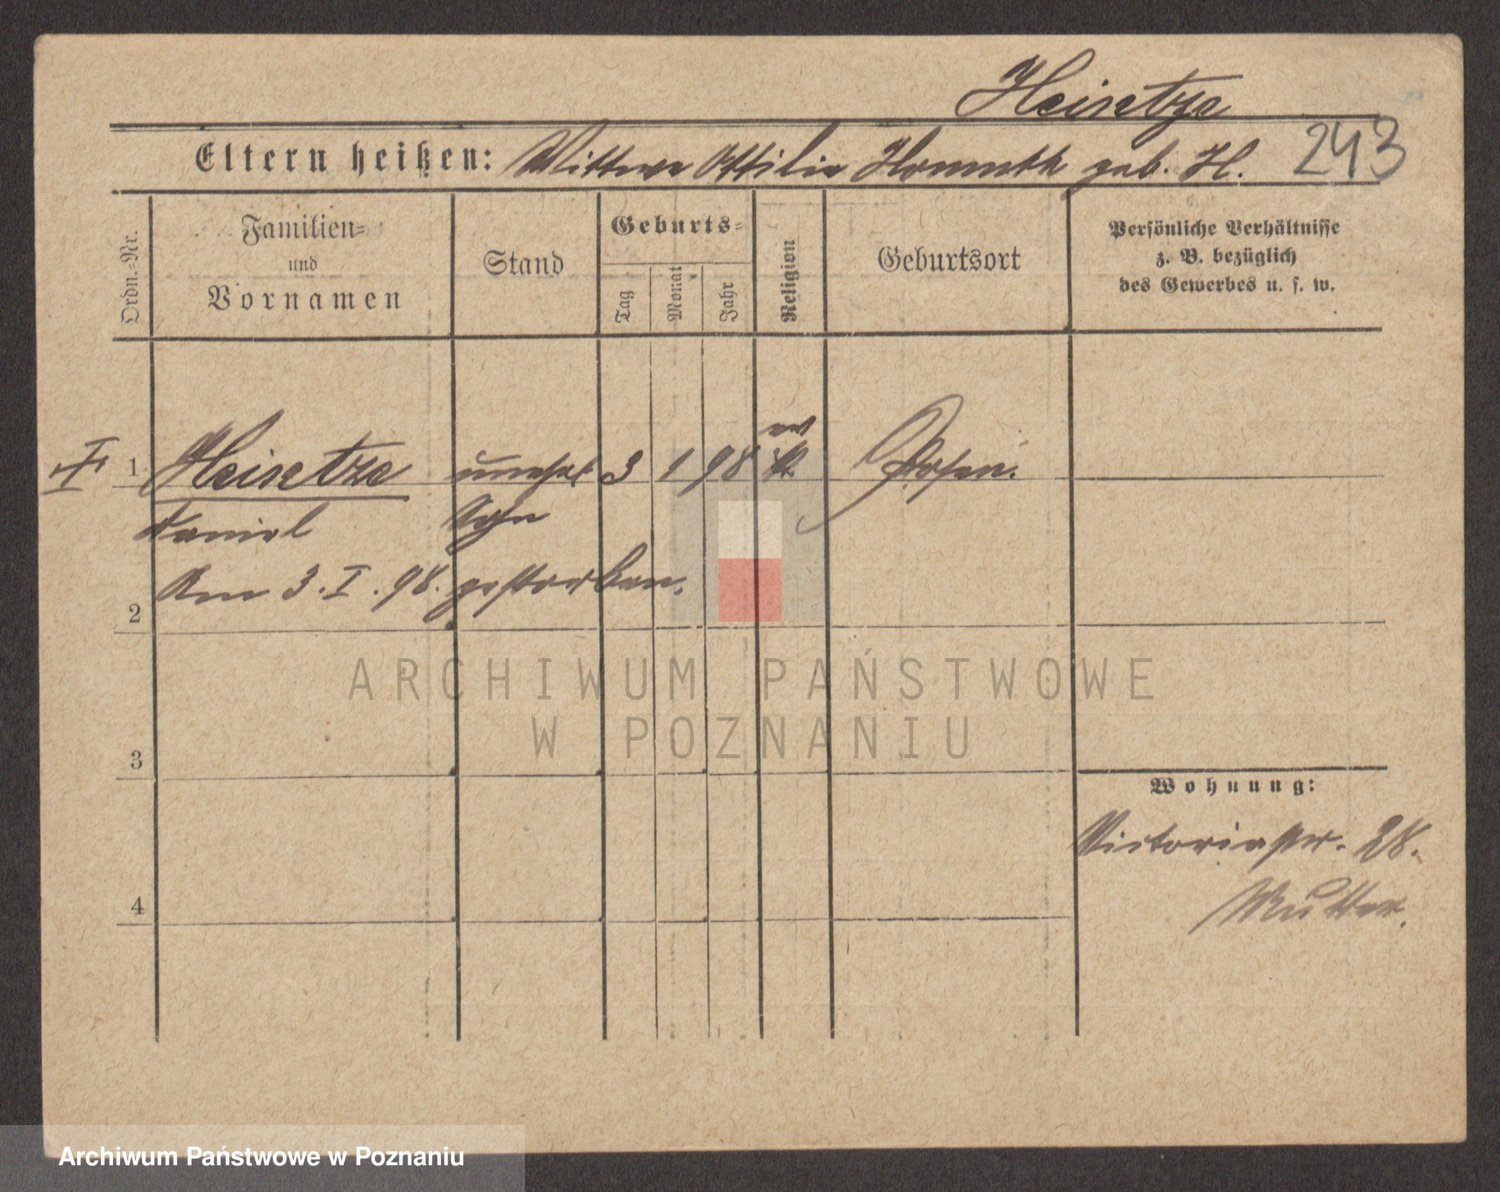 Heisetze
Eltern heißen: Wittwe Ottilie Homuth geb. H. 243
Ordn.-Nr.
Familien-
und
Vornamen
Stand
Geburts-
Tag
Monat
Jahr
Religion
Geburtsort
Persönliche Verhältnisse
z. B. bezüglich
des Gewerbes u. s. w.
I 1 Heisetze unehel. 3 1 98 Posen.
Daniel Sohn
Am 3. I. 98. gestorben.
2
ARCHIWUM PAŃSTWOWE
W POZNANIU
3
Wohnung:
Victoriastr. 28.
4
Mutter.
Archiwum Państwowe w Poznaniu